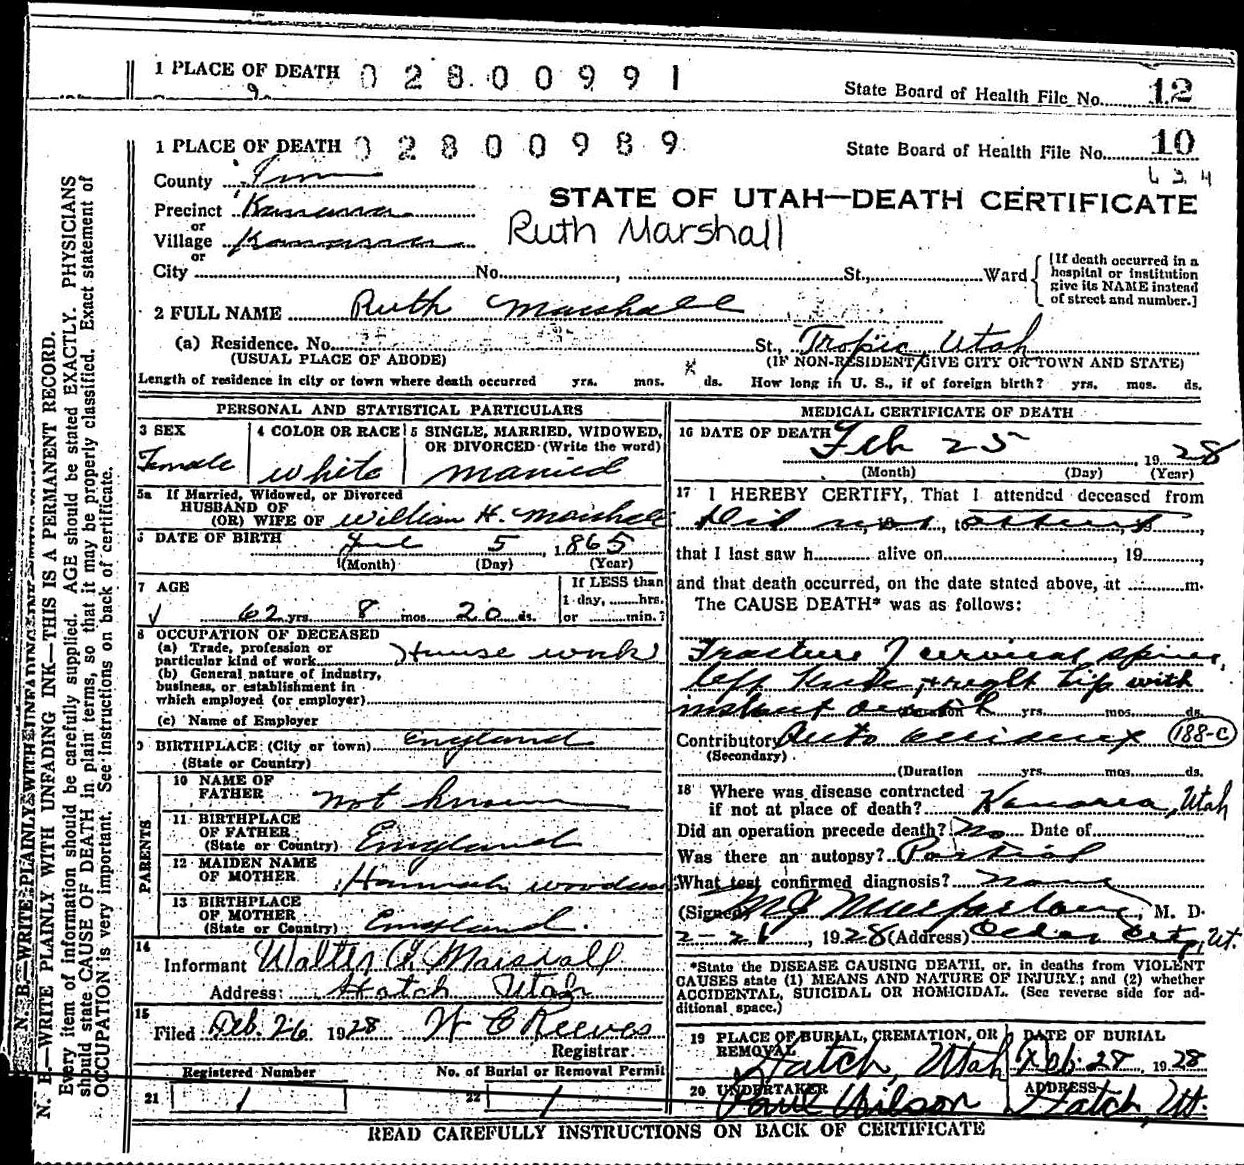 1 PLACE OF DEATH 02800991 State Board of Health File No. 12
1 PLACE OF DEATH 02800989 State Board of Health File No. 10
634
County Iron
STATE OF UTAH—DEATH CERTIFICATE
Precinct Kanarra
or
Village Kanarra
Ruth Marshall
or
City No. , St., Ward
[If death occurred in a hospital or institution give its NAME instead of street and number.]
2 FULL NAME Ruth Marshall
(a) Residence. No. St., Tropic Utah
(USUAL PLACE OF ABODE) (IF NON-RESIDENT GIVE CITY OR TOWN AND STATE)
Length of residence in city or town where death occurred yrs. mos. ds. How long in U. S., if of foreign birth? yrs. mos. ds.
PERSONAL AND STATISTICAL PARTICULARS
3 SEX Female
4 COLOR OR RACE white
5 SINGLE, MARRIED, WIDOWED, OR DIVORCED (Write the word) married
5a If Married, Widowed, or Divorced
HUSBAND OF
(OR) WIFE OF William H. Marshall
6 DATE OF BIRTH 5, 1865
(Month) (Day) (Year)
7 AGE 62 yrs. 8 mos. 20 ds.
If LESS than 1 day, hrs. or min.?
8 OCCUPATION OF DECEASED
(a) Trade, profession or particular kind of work House work
(b) General nature of industry, business, or establishment in which employed (or employer)
(c) Name of Employer
9 BIRTHPLACE (City or town) England
(State or Country)
PARENTS
10 NAME OF FATHER not known
11 BIRTHPLACE OF FATHER (State or Country) England
12 MAIDEN NAME OF MOTHER Hannah
13 BIRTHPLACE OF MOTHER (State or Country) England.
14 Informant Walter G. Marshall
Address: Hatch Utah
15 Filed Feb. 26 1928 W C Reeves
Registrar.
Registered Number No. of Burial or Removal Permit
21 1 22 1
MEDICAL CERTIFICATE OF DEATH
16 DATE OF DEATH Feb 25, 1928
(Month) (Day) (Year)
17 I HEREBY CERTIFY, That I attended deceased from
Did not attend
that I last saw h alive on , 19
and that death occurred, on the date stated above, at m.
The CAUSE DEATH* was as follows:
Fracture of cervical spine,
left knee, + right hip with
instant death yrs. mos. ds.
Contributory Auto accident 188-C
(Secondary)
(Duration yrs. mos. ds.
18 Where was disease contracted if not at place of death? Kanarra, Utah
Did an operation precede death? No Date of
Was there an autopsy? Partial
What test confirmed diagnosis? none
(Signed) M J Macfarlane, M. D.
2-26, 1928 (Address) Cedar City, Ut.
*State the DISEASE CAUSING DEATH, or, in deaths from VIOLENT CAUSES state (1) MEANS AND NATURE OF INJURY; and (2) whether ACCIDENTAL, SUICIDAL OR HOMICIDAL. (See reverse side for additional space.)
19 PLACE OF BURIAL, CREMATION, OR REMOVAL Hatch, Utah
DATE OF BURIAL Feb. 28, 1928
20 UNDERTAKER Paul Wilson
ADDRESS Hatch, Ut.
READ CAREFULLY INSTRUCTIONS ON BACK OF CERTIFICATE
N. B.—WRITE PLAINLY WITH UNFADING INK—THIS IS A PERMANENT RECORD.
Every item of information should be carefully supplied. AGE should be stated EXACTLY. PHYSICIANS
should state CAUSE OF DEATH in plain terms, so that it may be properly classified. Exact statement of
OCCUPATION is very important. See instructions on back of certificate.